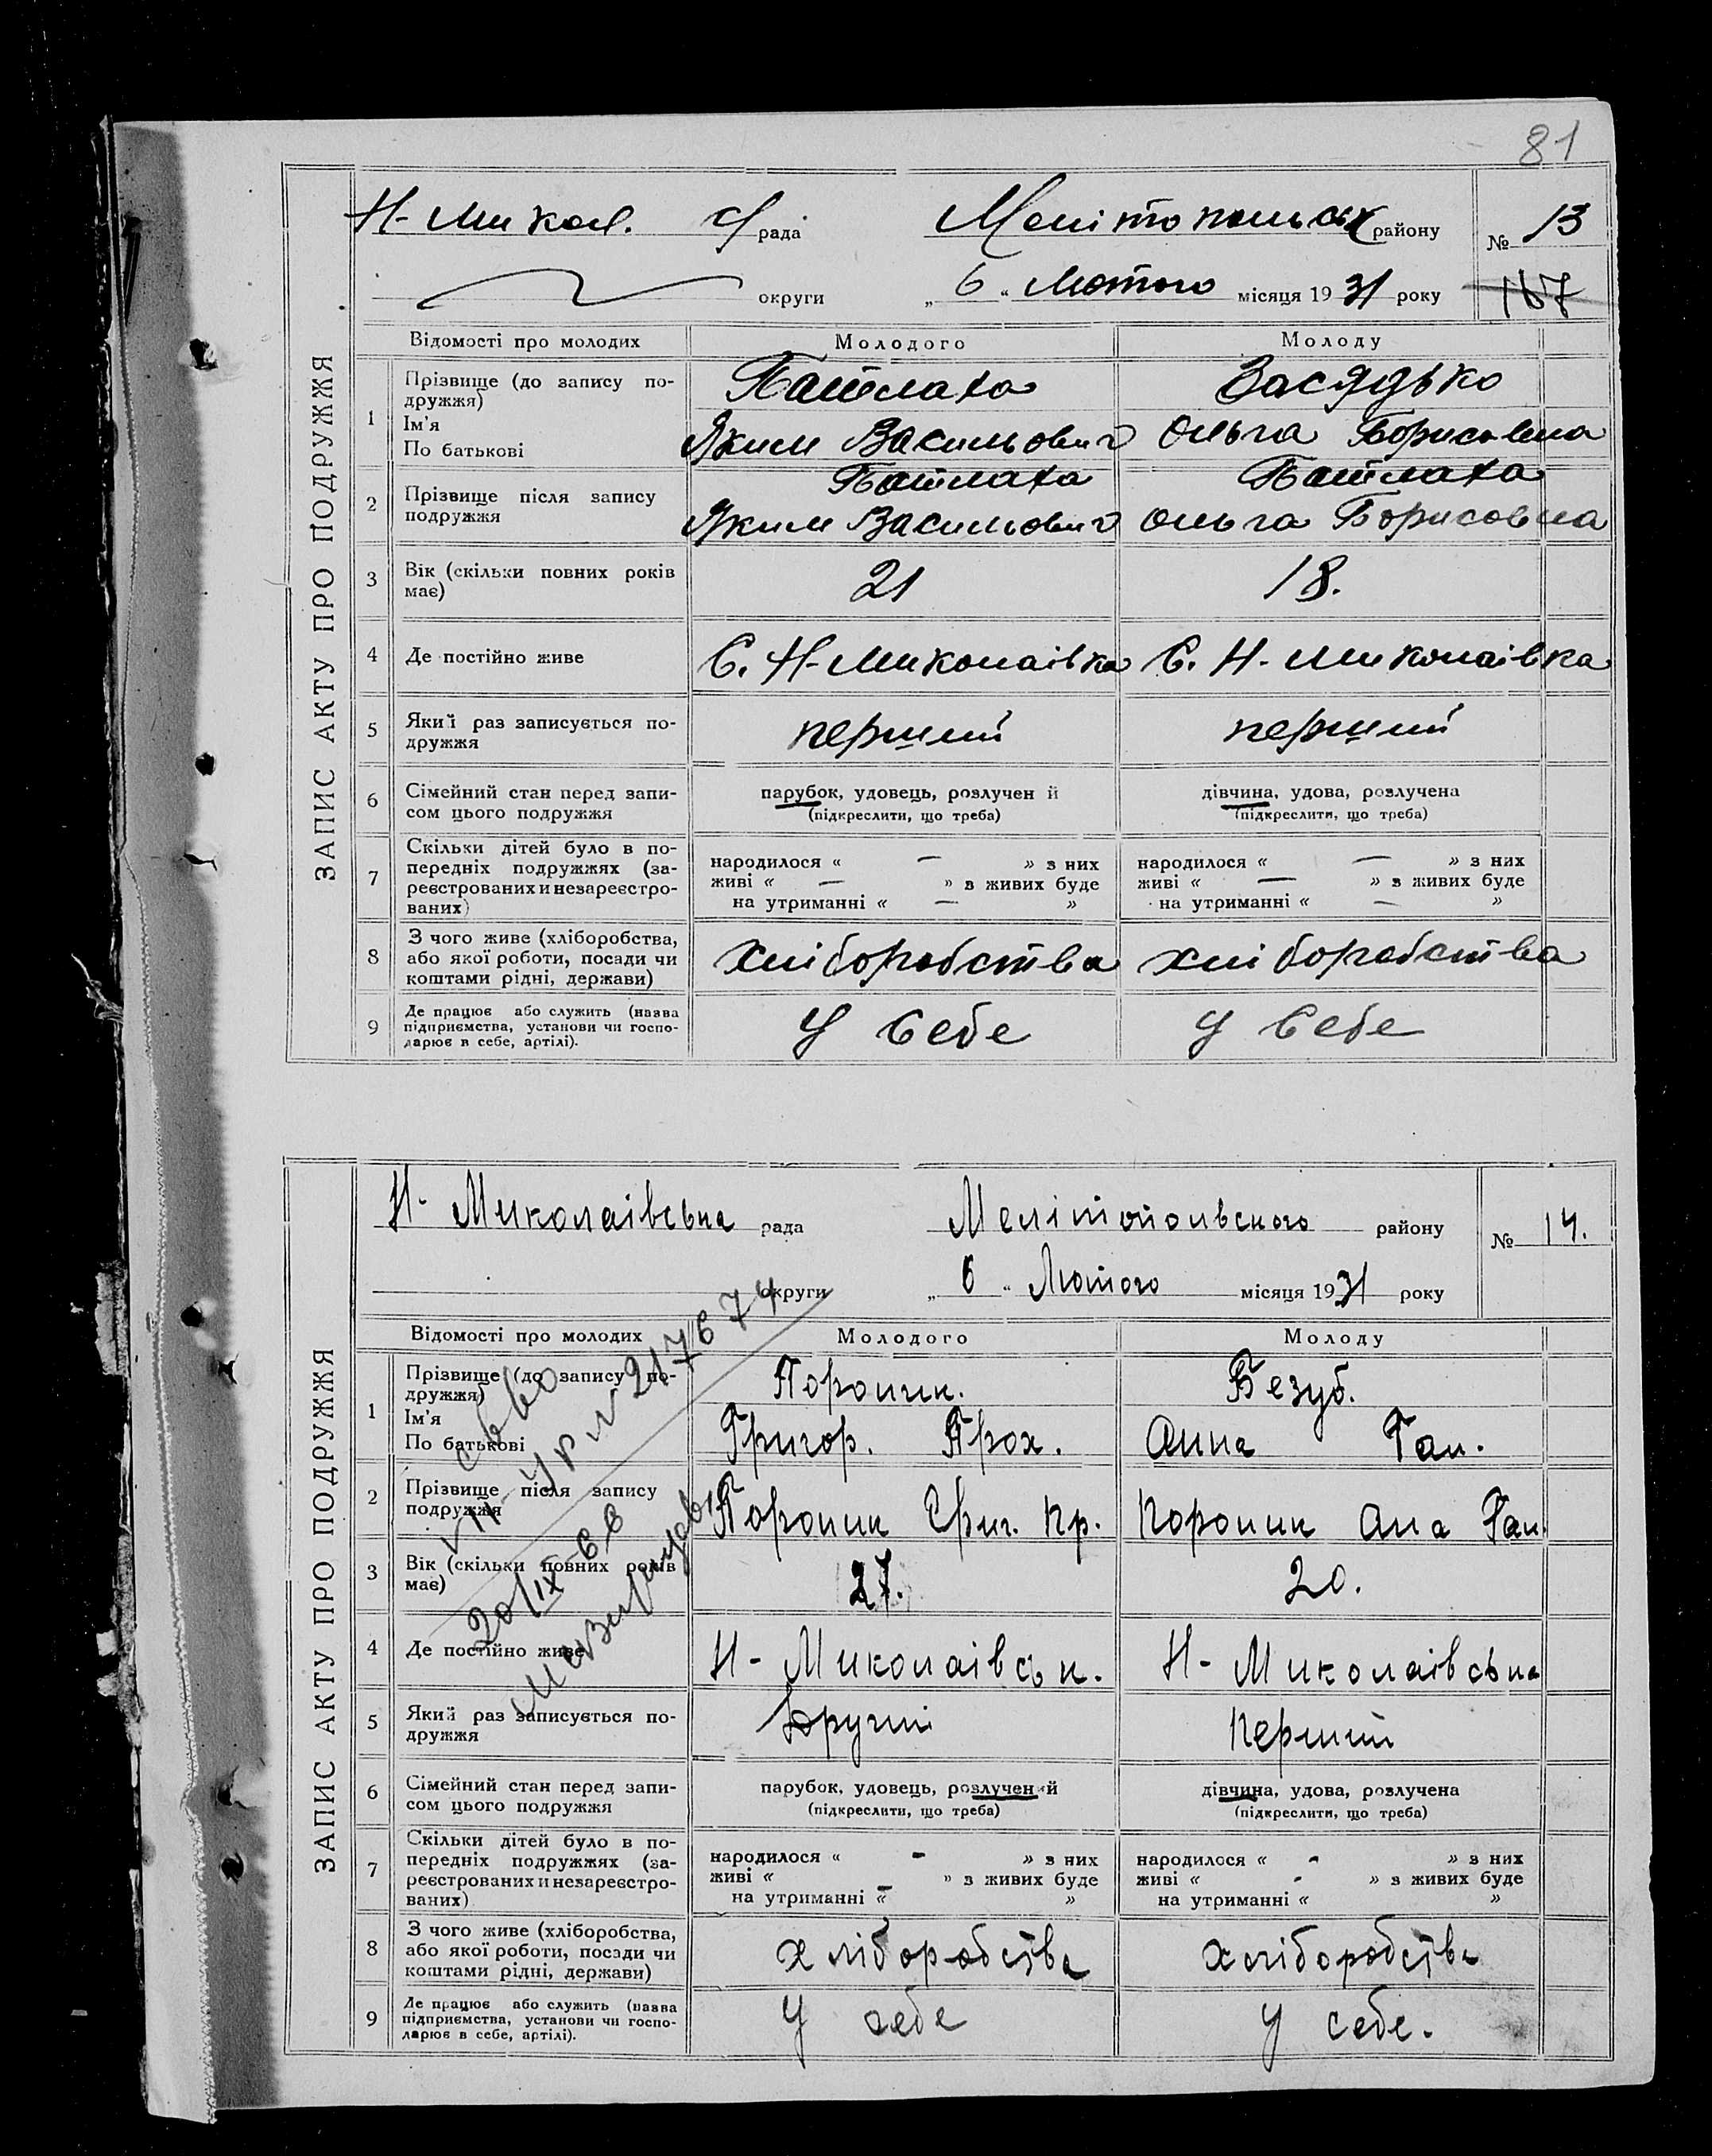 81
Н-Микол. С/рада Мелітопольськ району № 13
округи „6“ Лютого місяця 1931 року 167
ЗАПИС АКТУ ПРО ПОДРУЖЖЯ
Відомості про молодих Молодого Молоду
1 Прізвище (до запису по-
дружжя) Батлаха Засядько
Ім'я
По батькові Яким Васильович Ольга Борисовна
2 Прізвище після запису
подружжя Батлаха Батлаха
Яким Васильович Ольга Борисовна
3 Вік (скільки повних років
має) 21 18.
4 Де постійно живе С. Н-Миколаівка С. Н-Миколаівка
5 Який раз записується по-
дружжя перший перший
6 Сімейний стан перед запи-
сом цього подружжя
парубок, удовець, розлучен й дівчина, удова, розлучена
(підкреслити, що треба) (підкреслити, що треба)
7 Скільки дітей було в по-
передніх подружжях (за-
реєстрованих и незареєстро-
ваних)
народилося « — » з них народилося « — » з них
живі « — » з живих буде живі « — » з живих буде
на утриманні « — » на утриманні « — »
8 З чого живе (хліборобства,
або якої роботи, посади чи
коштами рідні, держави) хліборобства хліборобства
9 Де працює або служить (назва
підприємства, установи чи госпо-
дарює в себе, артілі). У себе У себе
Н-Миколаівська рада Мелітопольвського району № 14.
округи „6“ Лютого місяця 1931 року
ЗАПИС АКТУ ПРО ПОДРУЖЖЯ
Відомості про молодих Молодого Молоду
1 Прізвище (до запису по-
дружжя) Безуб.
Ім'я
По батькові Григор. Прох. Анна Гал.
2 Прізвище після запису
подружжя Григ. Пр. Ана Гал.
3 Вік (скільки повних років
має) 27. 20.
4 Де постійно живе Н-Миколаівськ. Н-Миколаівська
5 Який раз записується по-
дружжя Другий Перший
6 Сімейний стан перед запи-
сом цього подружжя
парубок, удовець, розлучений дівчина, удова, розлучена
(підкреслити, що треба) (підкреслити, що треба)
7 Скільки дітей було в по-
передніх подружжях (за-
реєстрованих и незареєстро-
ваних)
народилося « - » з них народилося « - » з них
живі « » з живих буде живі « - » з живих буде
на утриманні « - » на утриманні « »
8 З чого живе (хліборобства,
або якої роботи, посади чи
коштами рідні, держави) хліборобства хліборобства
9 Де працює або служить (назва
підприємства, установи чи госпо-
дарює в себе, артілі). У себе У себе.
20/IX-66